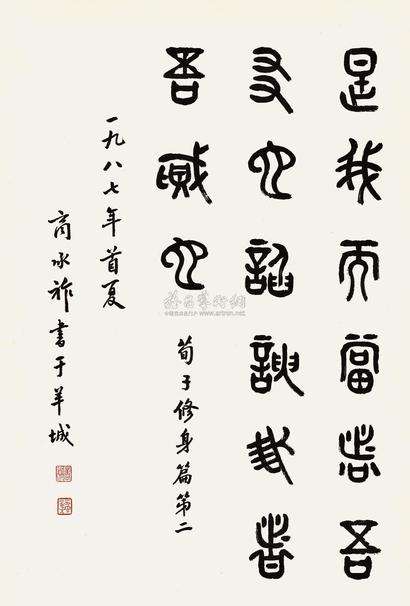 是我而當者吾
友也諂諛我者
吾賊也
荀子修身篇第二
一九八七年首夏
商承祚書于羊城
雅昌藝術網
www.artron.net